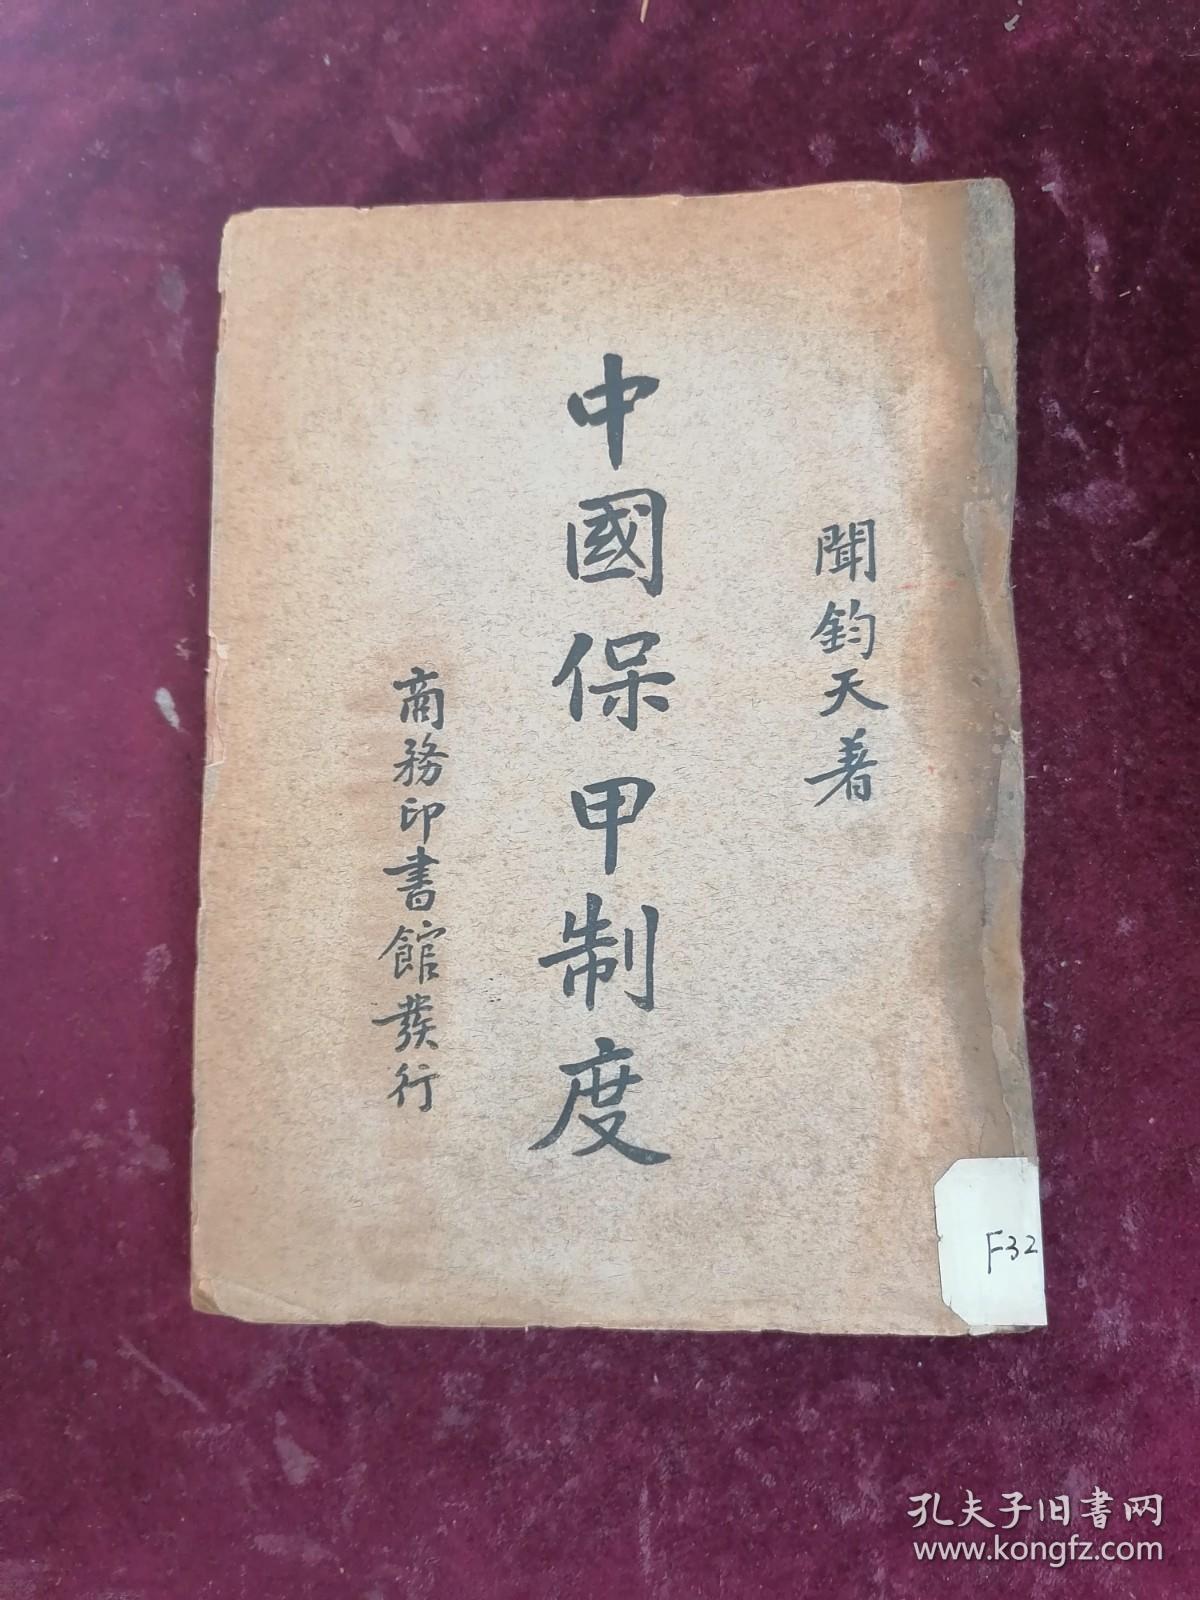 聞鈞天著
中國保甲制度
商務印書館發行
F32
孔夫子旧书网
www.kongfz.com